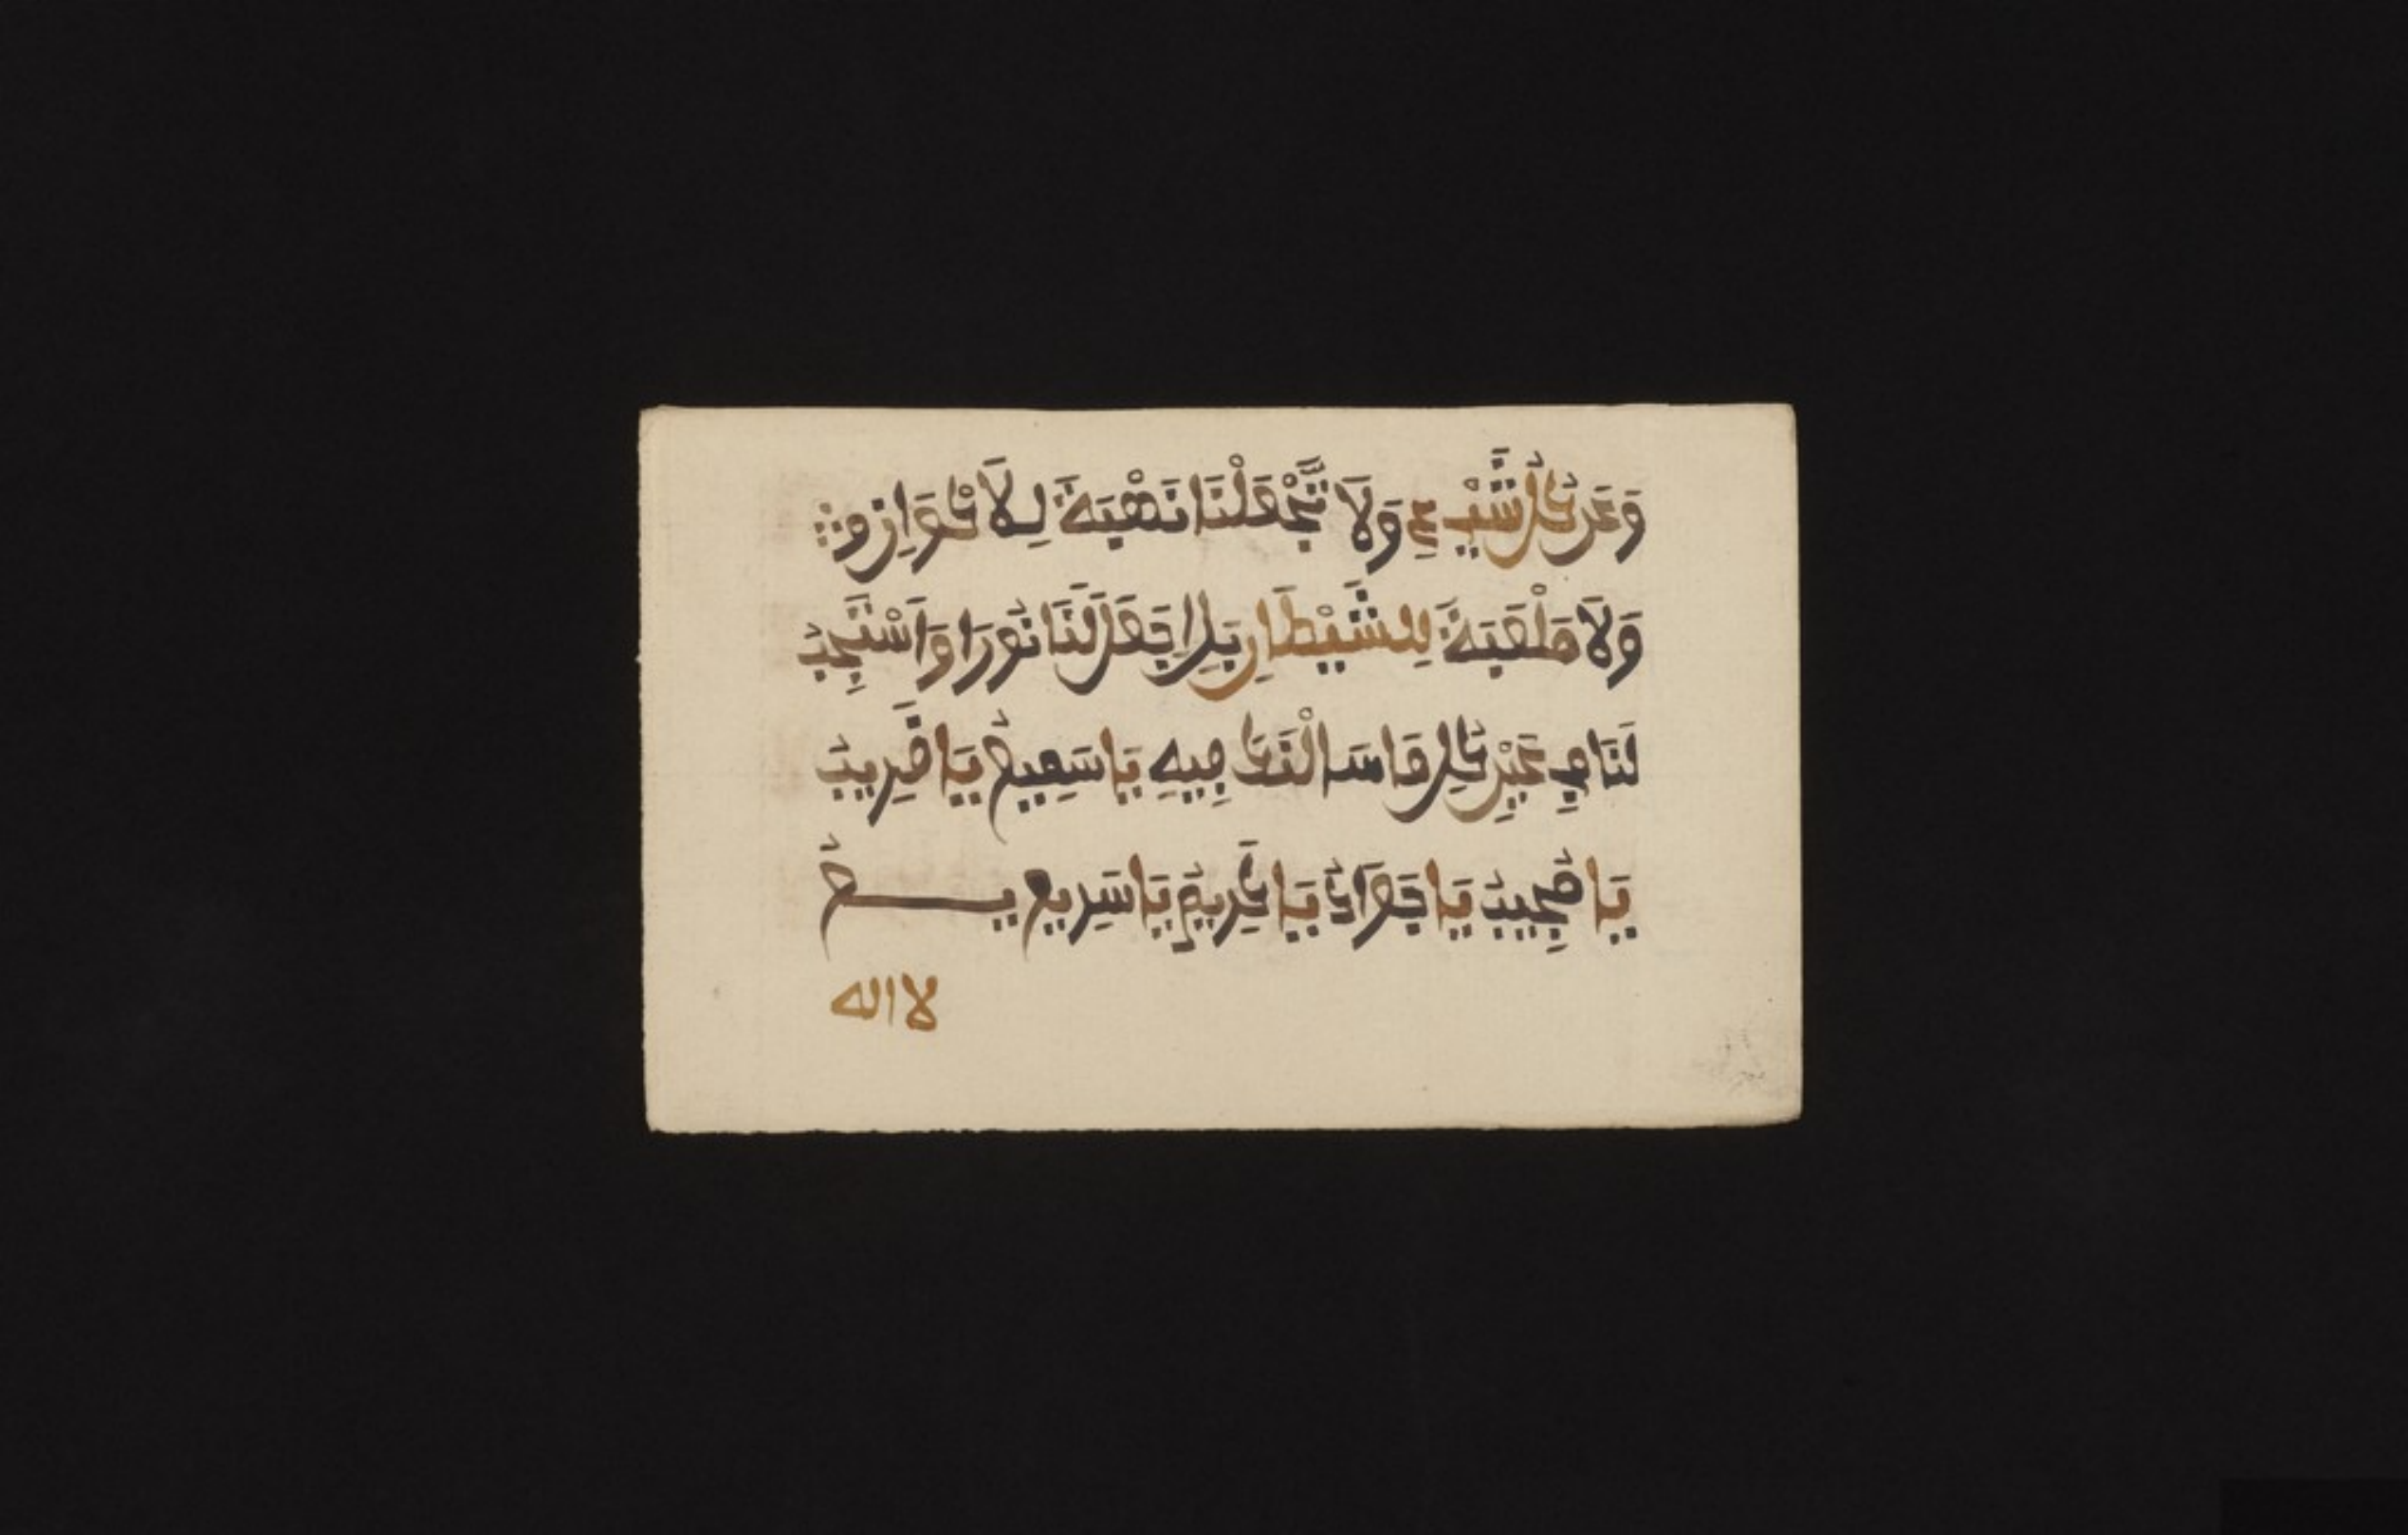 وَعَن كُلِّ شَيْءٍ وَلَا تَجْعَلْنَا نَهْبَةً لِلْأَكْوَانِ
وَلَا مَلْعَبَةً لِلشَّيْطَانِ بَلِ اجْعَل لَّنَا نُورًا وَاسْتَجِبْ
لَنَا فِي غَيْرِ كُلِّ مَا سَأَلْنَاكَ فِيهِ يَا سَمِيعُ يَا قَرِيبُ
يَا مُجِيبُ يَا جَوَادُ يَا كَرِيمُ يَا سَرِيعُ
لا اله